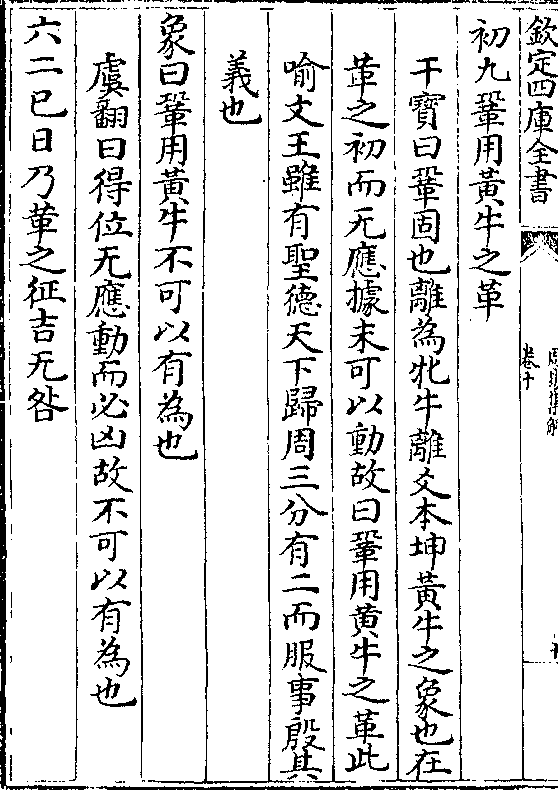 欽定四庫全書
卷十
初九鞏用黃牛之革
干寶曰鞏固也離為牝牛離爻本坤黃牛之象也在
革之初而无應據未可以動故曰鞏用黃牛之革此
喻文王雖有聖德天下歸周三分有二而服事殷其
義也
象曰鞏用黃牛不可以有為也
虞翻曰得位无應動而必凶故不可以有為也
六二已日乃革之征吉无咎